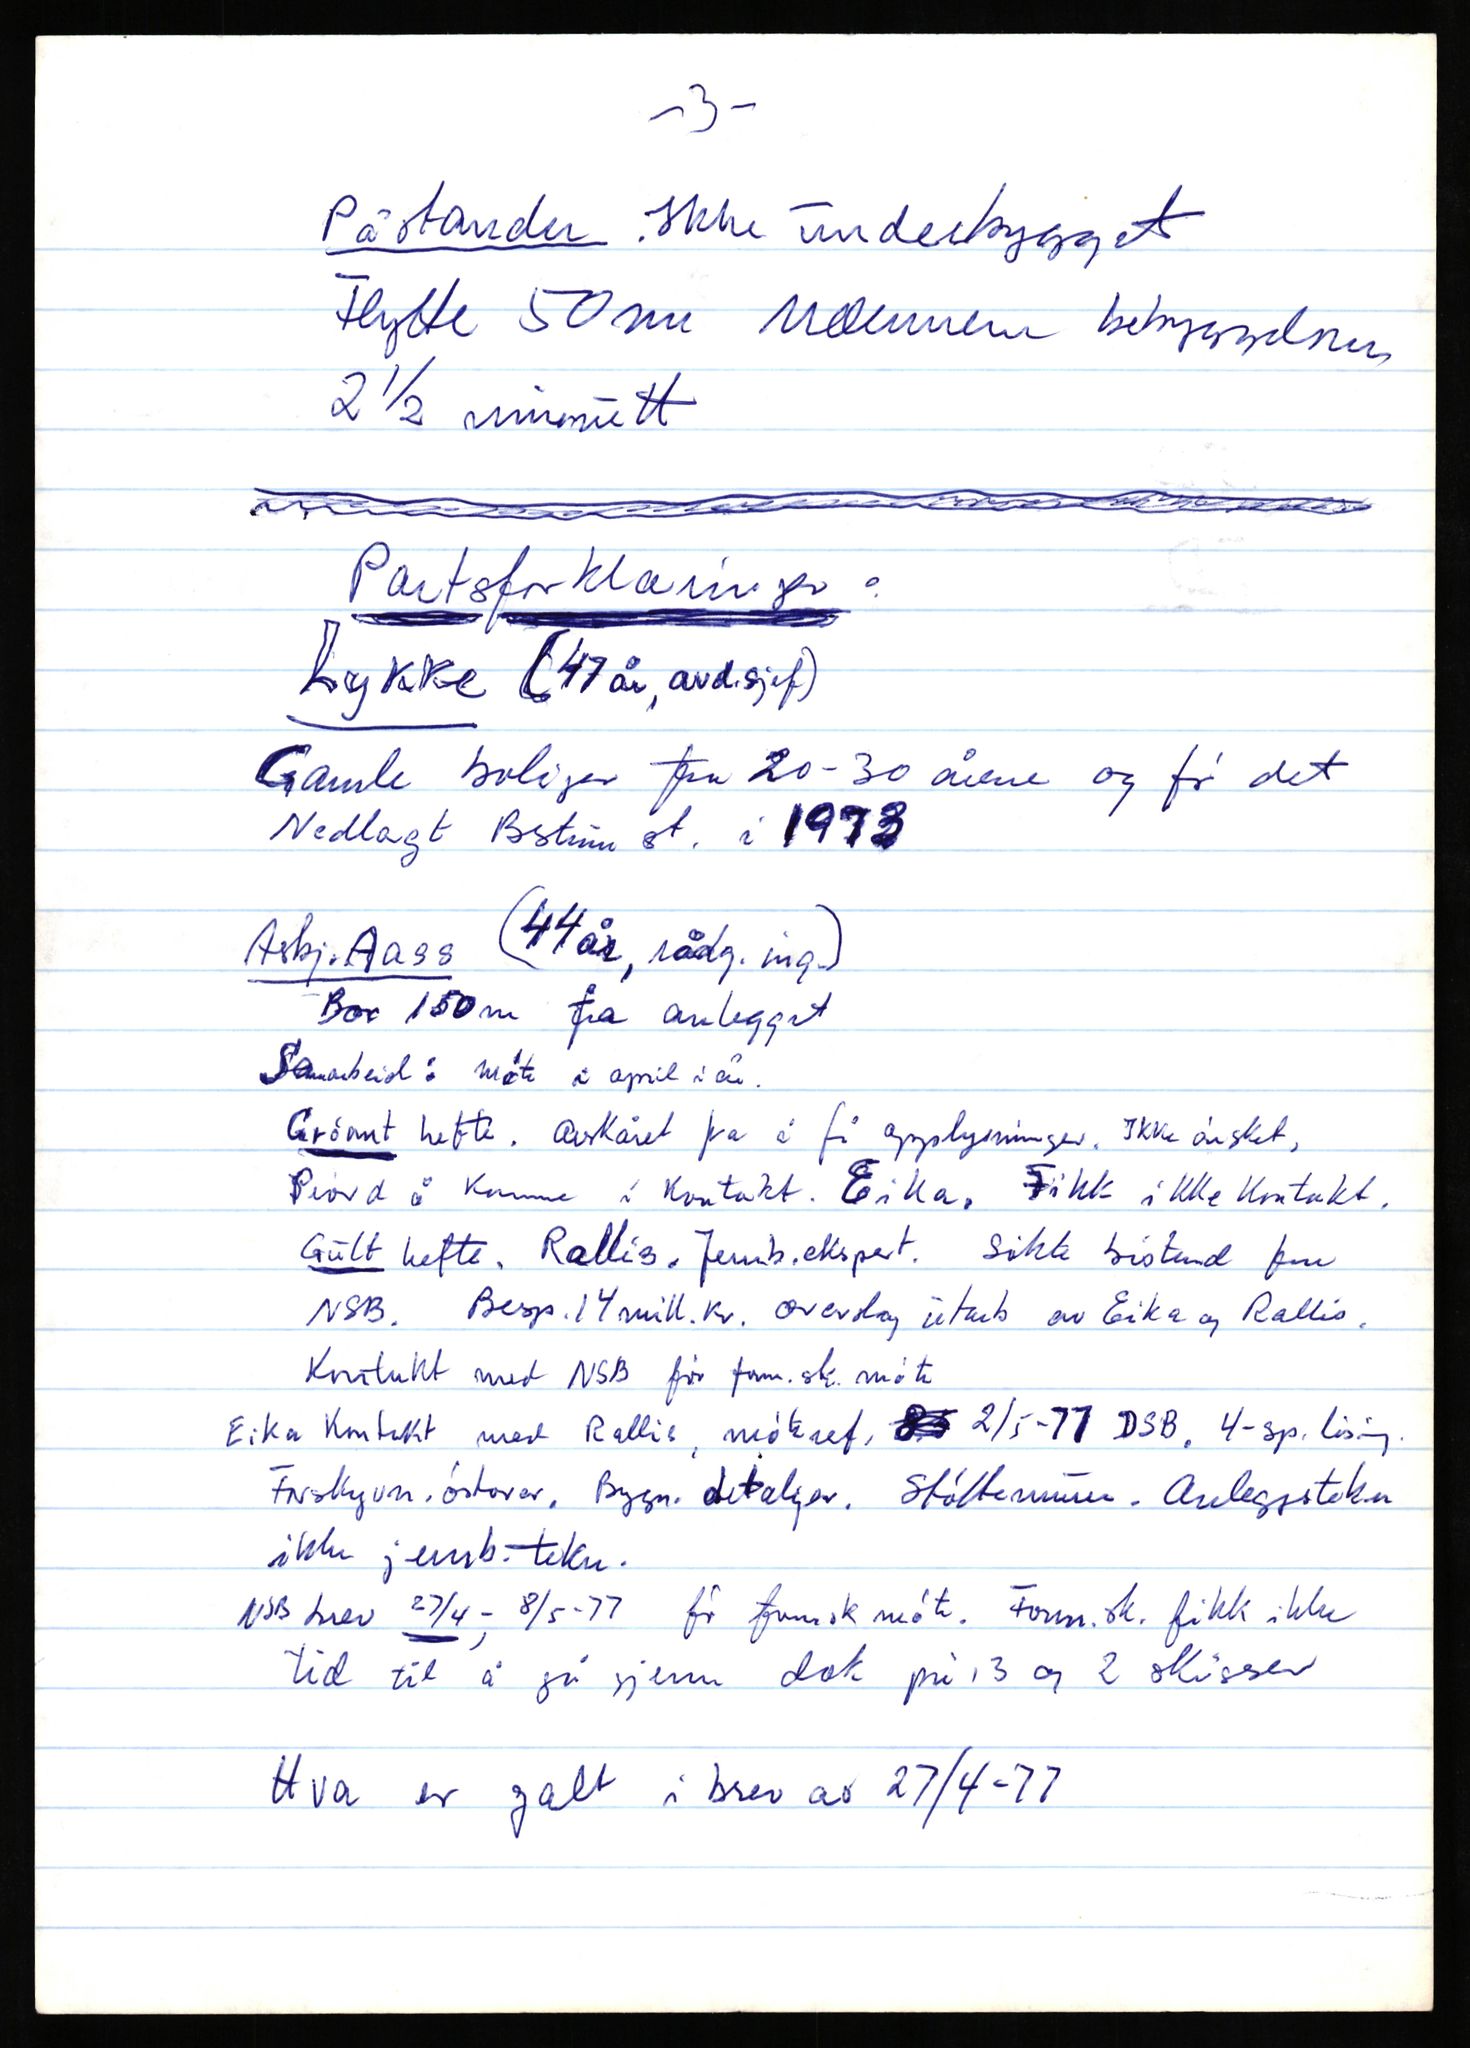 -3-
Påstander ikke underbygget
Flytte 50 m bebyggelsen
2 1/2 minutt
Partsforklaringer:
Lykke (47 år, avd.sjef)
Gamle boliger fra 20-30 årene og før det
Nedlagt Bestun st. i 1973
Asbj. Aass (44 år, rådg. ing.)
Bor 150 m fra anlegget
Samarbeid: møte i april i år.
Grønt hefte. Avskåret fra å få opplysninger. Ikke ønsket.
Prøvd å komme i kontakt. Eika. Fikk ikke kontakt.
Gult hefte. Rallis. Jernb.ekspert. Søkte bistand fra
NSB. Besp. 14 mill. kr. Overslag utarb av Eika og Rallis.
Kontakt med NSB før form.sk. møte
Eika kontakt med Rallis, møteref. 2/5-77 DSB. 4-sp. løsing.
Forskyvn. østover. Bygn. detaljer. Støttemurer. Anleggstekn
ikke jernb.-tekn.
NSB brev 27/4, 8/5-77 før formsk møte. Form.sk. fikk ikke
tid til å gå gjenn dok pri. 3 og 2 skisser
Hva er galt i brev av 27/4-77